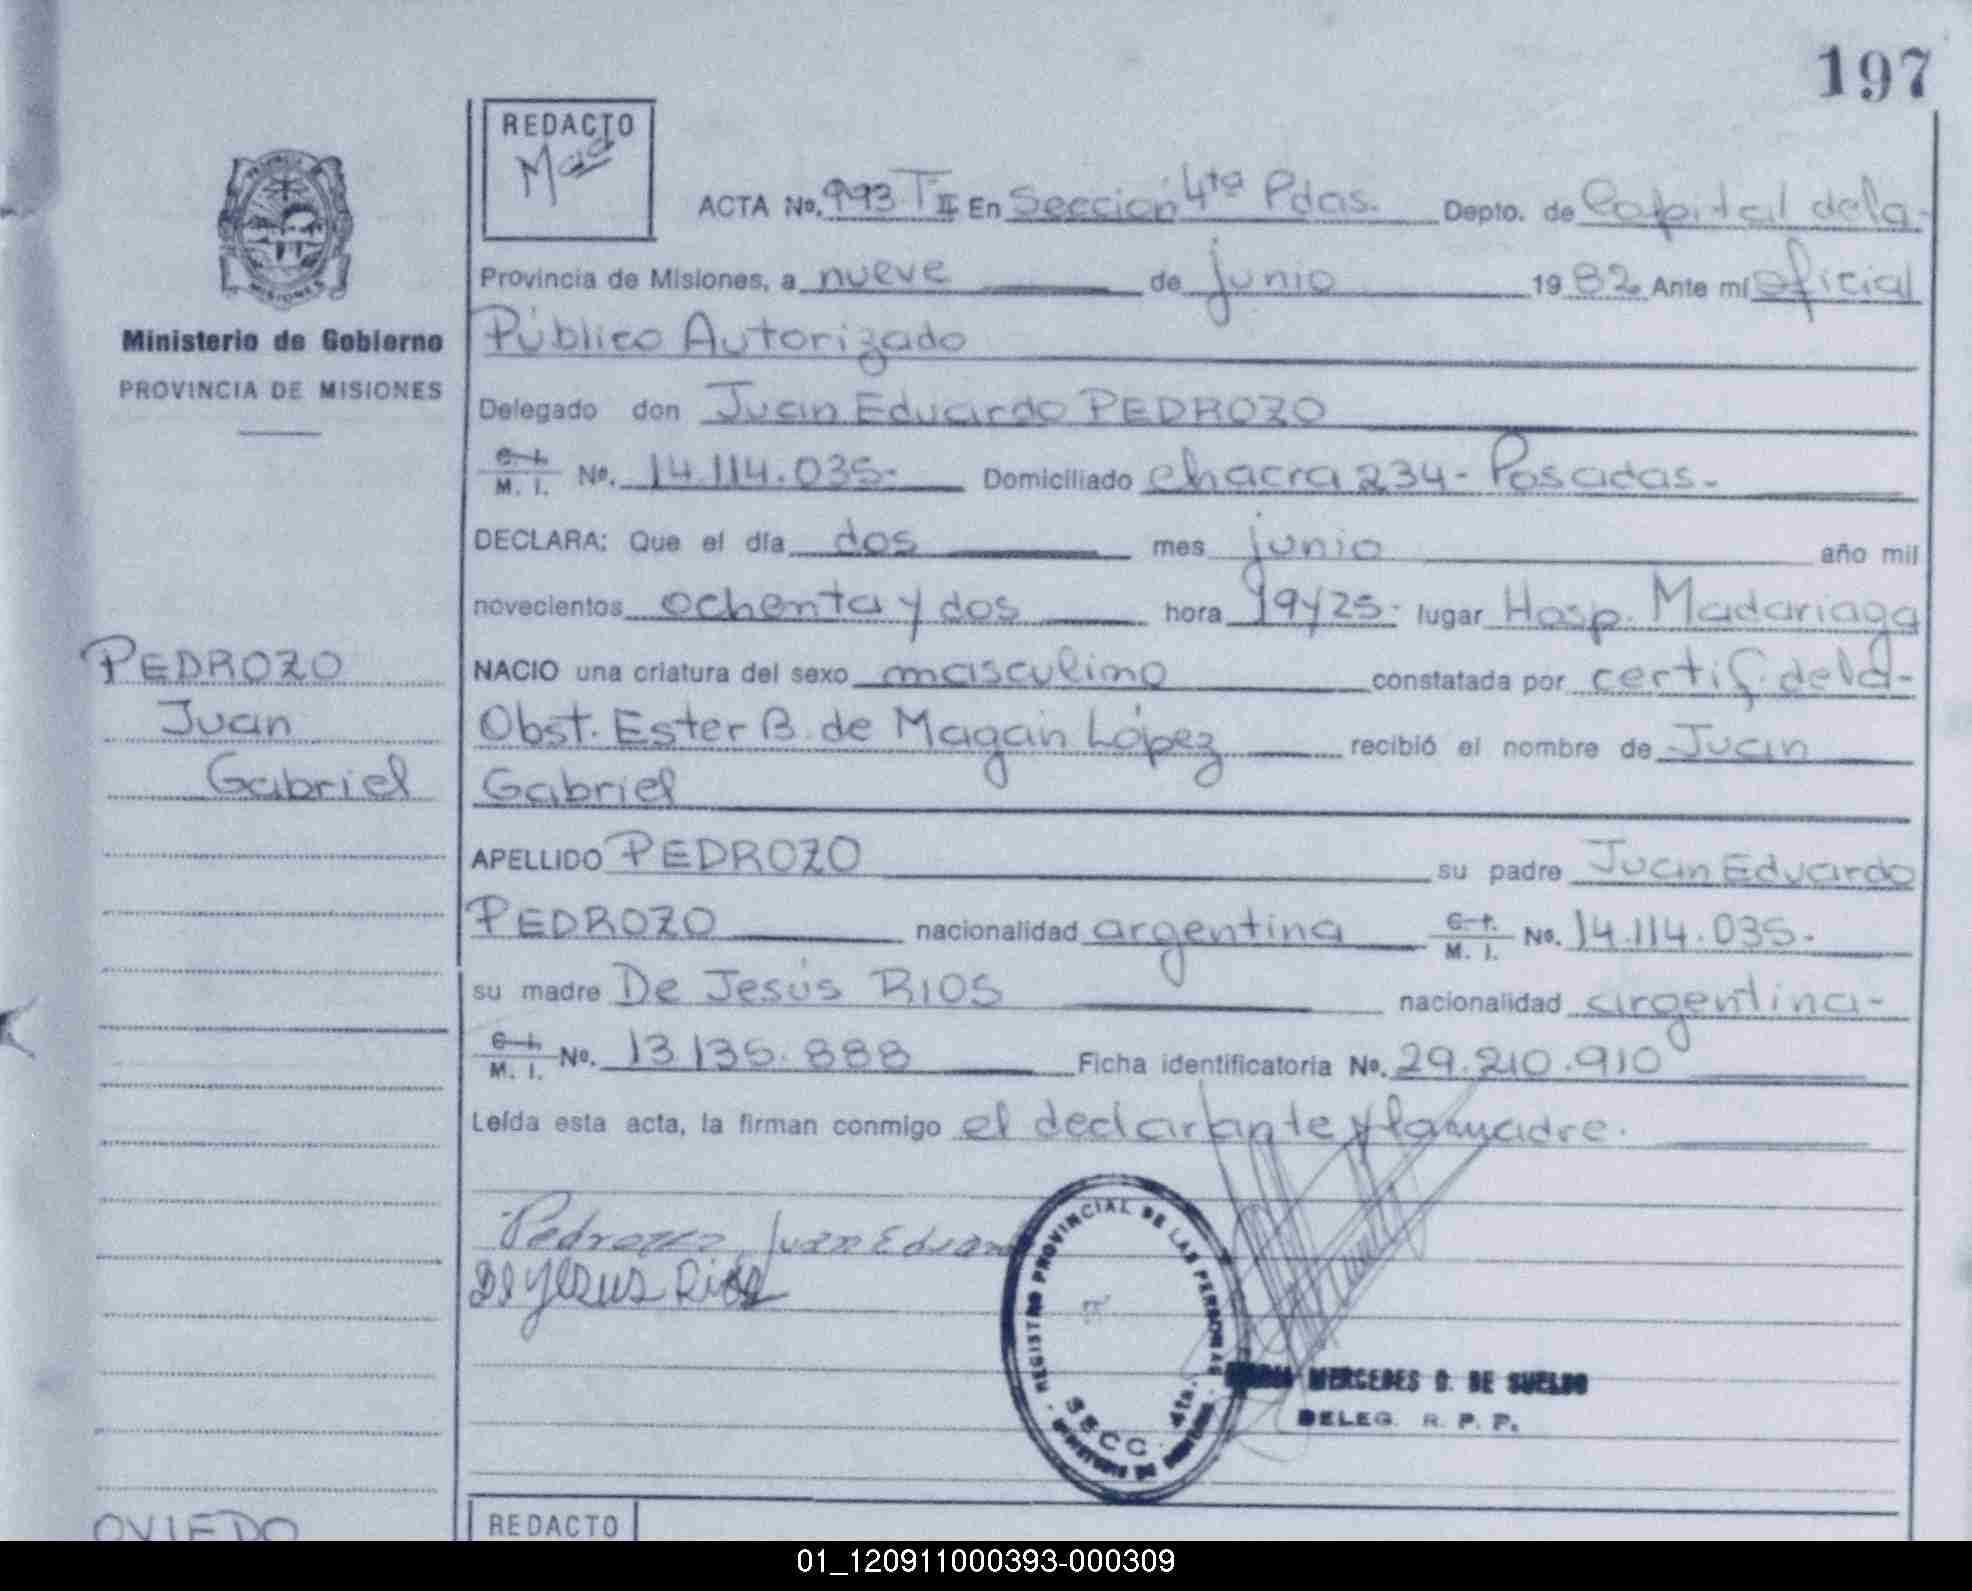 197
REDACTO
ACTA No. 993 T II En Sección 4ta Pdas. Depto. de Capital de la-
Provincia de Misiones, a nueve de junio 1982 Ante mí oficial
Ministerio de Gobierno
Público Autorizado
PROVINCIA DE MISIONES
Delegado don Juan Eduardo PEDROZO
C. I. M. I. No. 14.114.035- Domiciliado chacra 234- Posadas-
DECLARA: Que el día dos mes junio año mil
novecientos ochenta y dos hora 19y25- lugar Hosp. Madariaga
PEDROZO
NACIO una criatura del sexo masculino constatada por certif. de la-
Juan
Obst. Ester B. de Magán López recibió el nombre de Juan
Gabriel
Gabriel
APELLIDO PEDROZO su padre Juan Eduardo
PEDROZO nacionalidad argentina C. I. M. I. No. 14.114.035-
su madre De Jesús RIOS nacionalidad argentina-
C. I. M. I. No. 13.135.888 Ficha identificatoria No. 29.210.910
Leída esta acta, la firman conmigo el declarante y la madre.
Juan Eduardo
De Jesus Rios
REGISTRO PROVINCIAL DE LAS PERSONAS
SECC. 4ta.
MERCEDES D. DE SUELDO
DELEG. R. P. P.
OVIEDO
REDACTO
01_120911000393-000309